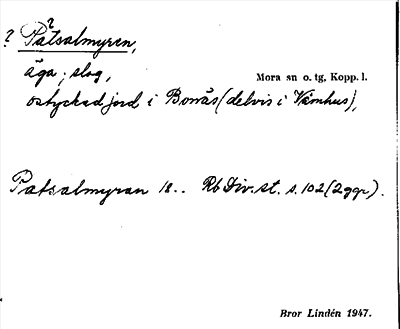 ? Påtsalmyren,
?
äga; slog,
Mora sn o. tg, Kopp. l.
ostyckad jord i Bonäs (delvis i Våmhus),
Patsalmyran 18.. Rb Div. st. s. 102 (2 ggr).
Bror Lindén 1947.